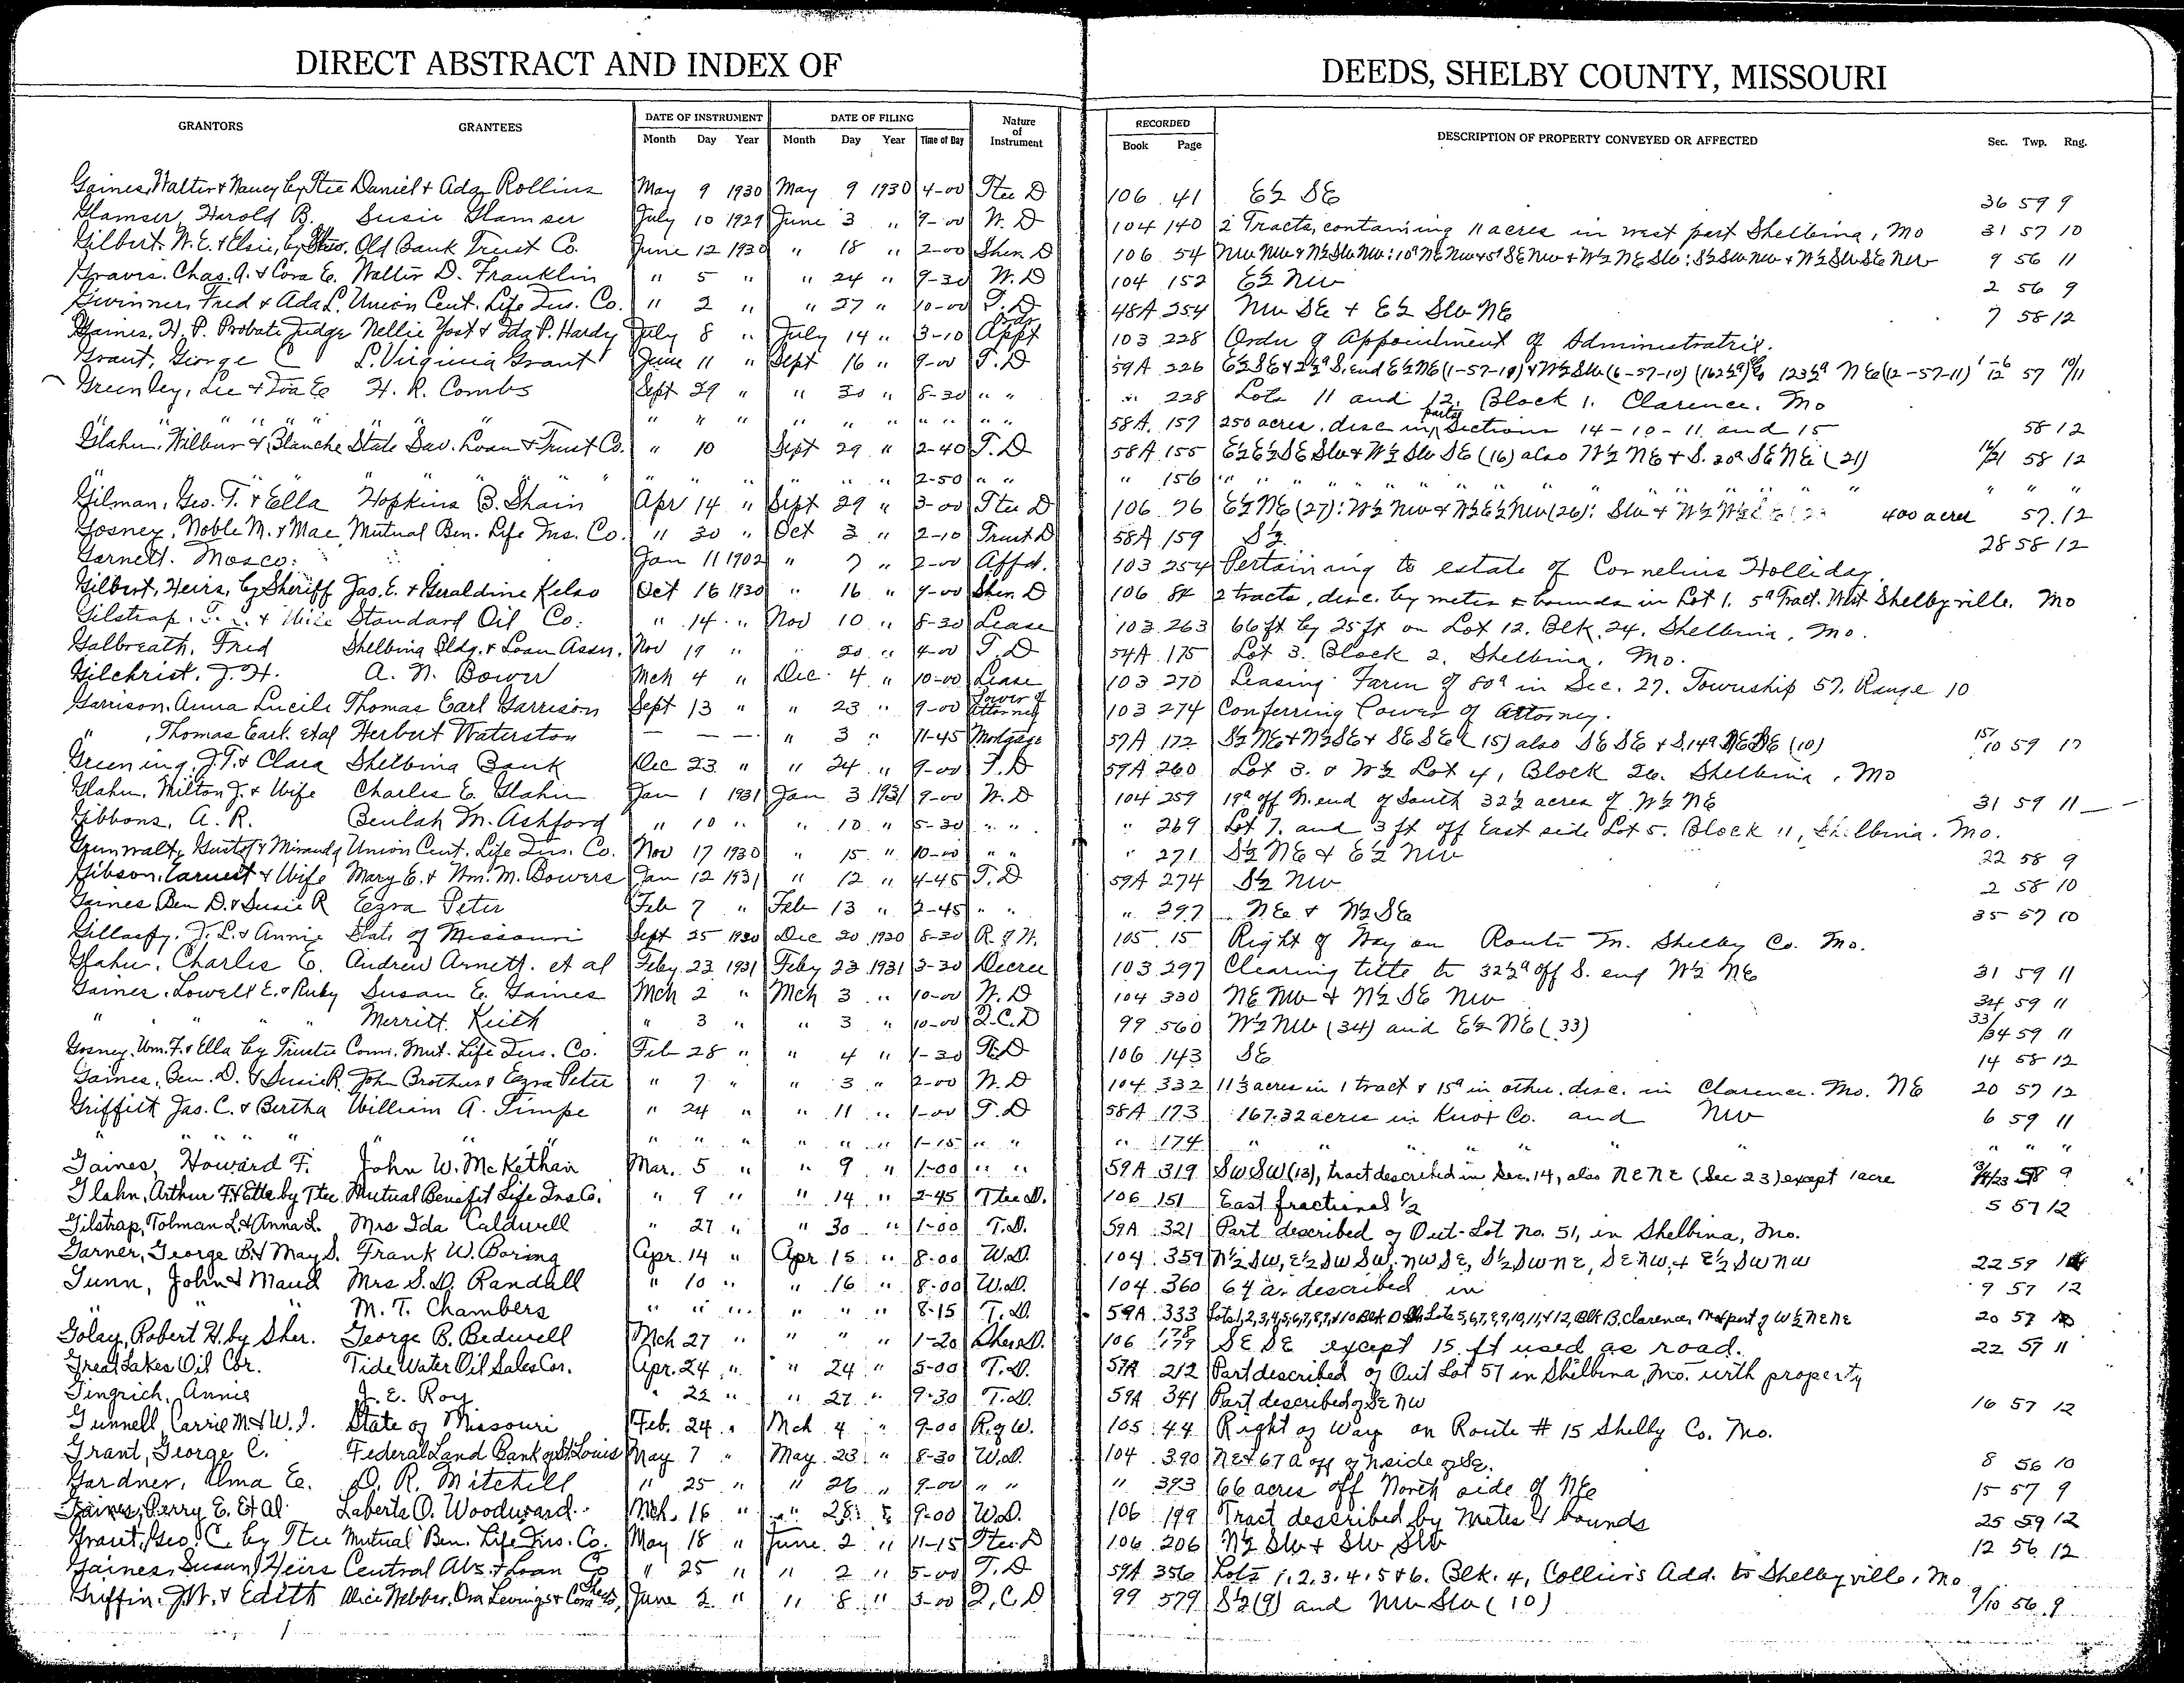 DIRECT ABSTRACT AND INDEX OF DEEDS, SHELBY COUNTY, MISSOURI
GRANTORS GRANTEES DATE OF INSTRUMENT DATE OF FILING Nature of Instrument RECORDED DESCRIPTION OF PROPERTY CONVEYED OR AFFECTED Sec. Twp. Rng.
Month Day Year Month Day Year Time of Day Book Page
Gaines, Walter & Nancy by Ttee Daniel & Ada Rollins May 9 1930 May 9 1930 4-00 Ttee D 106 41 E½ SE 36 59 9
Glamser, Harold B. Susie Glamser July 10 1929 June 3 " 9-00 W. D 104 140 2 Tracts, containing 11 acres in west part Shelbina, Mo 31 57 10
Gilbert, W. E. & Elsie, by Old Bank Trust Co. June 12 1930 " 18 " 2-00 Sher. D 106 54 NW NW & W½ SW NW: 10ª NE NW & 5ª SE NW & W½ NE SW: S½ SW NW & W½ SW SE NW 9 56 11
Gravis, Chas. A. & Cora E. Walter D. Franklin " 5 " " 24 " 9-30 W. D 104 152 E½ NW 2 56 9
Gwinner, Fred & Ada L. Union Cent. Life Ins. Co. " 2 " " 27 " 10-00 T. D 48A 254 NW SE & E½ SW NE 7 58 12
Gaines, H. P. Probate Judge Nellie Yost & Ida P. Hardy July 8 " July 14 " 3-10 Order Appt 103 228 Order of Appointment of Administratrix.
Grant, George C L. Virginia Grant June 11 " Sept 16 " 9-00 T. D 59A 226 E½ SE & 2½ª S. end E½ NE (1-57-10) & W½ SW (6-57-10) (162½ª) 123½ª NE (12-57-11) 1-6 12 57 10/11
Greenley, Lee & Iva E H. R. Combs Sept 29 " " 30 " 8-30 " " " 228 Lots 11 and 12, Block 1. Clarence. Mo
" " " " " " " " " " " " " " " 58A 157 250 acres, desc in parts Sections 14-10-11 and 15 58 12
Glahn, Wilbur & Blanche State Sav. Loan & Trust Co. " 10 Sept 29 " 2-40 T. D 58A 155 E½ E½ SE SW & W½ SW SE (16) also W½ NE & S. 20ª SE NE (21) 16/21 58 12
" " " " " " " " " 2-50 " " " 156 " " " " " " " " " " " "
Gilman, Geo. T. & Ella Hopkins B. Shain Apr 14 " Sept 29 " 3-00 Ttee D 106 76 E½ NE (27): W½ NW & W½ E½ NW (26): SW & W½ 400 acres 57 12
Gosney, Noble M. & Mae Mutual Ben. Life Ins. Co. " 30 " Oct 3 " 2-10 Trust D 58A 159 S½. 28 58 12
Garnett. Mosco. Jan 11 1902 " 7 " 2-00 Affd. 103 254 Pertaining to estate of Cornelius Holliday.
Gilbert, Heirs, by Sheriff Jas. E. & Geraldine Kelso Oct 16 1930 " 16 " 9-00 Sher. D 106 84 2 tracts, desc. by metes & bounds in Lot 1. 5ª Tract. West Shelbyville. Mo
Gilstrap, T. L. & Wife Standard Oil Co. " 14 " Nov 10 " 8-30 Lease 103 263 66 ft by 25 ft on Lot 12. Blk. 24. Shelbina, Mo.
Galbreath, Fred Shelbina Bldg. & Loan Assn. Nov 19 " 20 " 4-00 T. D 54A 175 Lot 3. Block 2. Shelbina. Mo.
Gilchrist, J. H. A. N. Bower Mch 4 " Dec. 4 " 10-00 Lease 103 270 Leasing Farm of 80ª in Sec. 27. Township 57. Range 10
Garrison, Anna Lucile Thomas Earl Garrison Sept 13 " " 23 " 9-00 Power of Attorney 103 274 Conferring Power of Attorney.
" , Thomas Earl. etal Herbert Waterston — — — " 3 " 11-45 Mortgage 57A 172 S½ NE & N½ SE & SE SE (15) also SE SE & S. 14ª NE SE (10) 15/10 59 12
Greening, J. T. & Clara Shelbina Bank Dec 23 " " 24 " 9-00 T. D 59A 260 Lot 3. & W½ Lot 4, Block 26. Shelbina, Mo
Glahn, Milton J. & Wife Charles E. Glahn Jan 1 1931 Jan 3 1931 9-00 W. D 104 259 19ª off N. end of South 32½ acres of W½ NE 31 59 11
Gibbons, A. R. Beulah M. Ashford " 10 " " 10 " 5-30 " " " 269 Lot 7. and 3 ft off East side Lot 5. Block 11, Shelbina. Mo.
Grunwalt, Gustof & Miranda Union Cent. Life Ins. Co. Nov 17 1930 " 15 " 10-00 " " " 271 S½ NE & E½ NW 22 58 9
Gibson, Earnest & Wife Mary E. & Wm. M. Bowers Jan 12 1931 " 12 " 4-45 T. D 59A 274 S½ NW 2 58 10
Gaines Ben D. & Susie R Ezra Peter Feb 7 " Feb 13 " 2-45 " " " 297 NE & W½ SE 35 57 10
Gillaspy, J. L. & Annie State of Missouri Sept 25 1930 Dec 20 1930 8-30 R. of W. 105 15 Right of Way on Route M. Shelby Co. Mo.
Glahn, Charles E. Andrew Arnett. et al Feby 23 1931 Feby 23 1931 3-30 Decree 103 297 Clearing title to 32½ª off S. end W½ NE 31 59 11
Gaines, Lowell E. & Ruby Susan E. Gaines Mch 2 " Mch 3 " 10-00 W. D 104 330 NE NW & N½ SE NW 34 59 11
" " " " Merritt Keith " 3 " " 3 " 10-00 Q. C. D 99 560 W½ NW (34) and E½ NE (33) 33/34 59 11
Gosney, Wm. F. & Ella by Trustee Conn. Mut. Life Ins. Co. Feb 28 " " 4 " 1-30 T. D 106 143 SE 14 58 12
Gaines, Ben. D. & Susie R. John Brothers & Ezra Peter " 7 " " 3 " 2-00 W. D 104 332 11⅓ acres in 1 tract & 15ª in other. desc. in Clarence. Mo. NE 20 57 12
Griffith Jas. C. & Bertha William A. Timpe " 24 " " 11 " 1-00 T. D 58A 173 167.32 acres in Knox Co. and NW 6 59 11
" " " " " " " " " " " 1-15 " " " 174 " " " " " " " " "
Gaines, Howard F. John W. McKethan Mar. 5 " " 9 " 1-00 " " 59A 319 SW SW (13), tract described in Sec. 14, also NE NE (Sec 23) except 1 acre 58 9
Glahn, Arthur F. & Etta by Ttee Mutual Benefit Life Ins Co. " 9 " " 14 " 2-45 Ttee D. 106 151 East fractional ½ 5 57 12
Gilstrap, Tolman L. & Anna L. Mrs Ida Caldwell " 27 " " 30 " 1-00 T. D. 59A 321 Part described of Out-Lot No. 51, in Shelbina, Mo.
Garner, George B. & May S. Frank W. Boring Apr. 14 " Apr. 15 " 8-00 W. D. 104 359 N½ SW, E½ SW SW, NW SE, S½ SW NE, SE NW, & E½ SW NW 22 59
Gunn, John & Maud Mrs S. D. Randall " 10 " " 16 " 8-00 W. D. 104 360 64 a. described in 9 57 12
" " M. T. Chambers " " " " " " 8-15 T. D. 59A 333 Lots 1,2,3,4,5,6,7,8,9 & 10 Blk D Lots 5,6,7,8,9,10,11, & 12, Blk B. Clarence, Mo & part of W½ NE NE 20 57
Golay, Robert H. by Sher. George B. Bedwell Mch 27 " " " " 1-20 Sher. D. 106 SE SE except 15 ft used as road. 22 57 11
Great Lakes Oil Cor. Tide Water Oil Sales Cor. Apr. 24 " " 24 " 5-00 T. D. 57A 212 Part described of Out Lot 57 in Shelbina, Mo. with property
Gingrich, Annie J. E. Roy " 22 " " 27 " 9-30 T. D. 59A 341 Part described of SE NW 16 57 12
Gunnell, Carrie M. & W. I. State of Missouri Feb. 24 " Mch 4 " 9-00 R. of W. 105 44 Right of Way on Route # 15 Shelby Co. Mo.
Grant, George C. Federal Land Bank of St. Louis May 7 " May 23 " 8-30 W. D. 104 390 NE & 67 A off of N side of SE. 8 56 10
Gardner, Alma E. D. R. Mitchell " 25 " " 26 " 9-00 " " " 393 66 acres off North side of NE 15 57 9
Gaines, Perry E. Et Al Laberta O. Woodward Mch. 16 " " 28 " 9-00 W. D. 106 199 Tract described by metes & bounds 25 59 12
Grant, Geo. C. by Ttee Mutual Ben. Life Ins. Co. May 18 " June 2 " 11-15 Ttee. D 106 206 N½ SW & SW SW 12 56 12
Gaines, Susan, Heirs Central Abs. & Loan Co " 25 " " 2 " 5-00 T. D 59A 356 Lots 1. 2. 3. 4. 5 & 6. Blk. 4, Collier's Add. to Shelbyville, Mo
Griffin, J. W. & Edith Alice Webber, Ora Levings & Cora June 2 " " 8 " 3-00 Q. C. D 99 579 S½ (9) and NW SW (10) 9/10 56 9